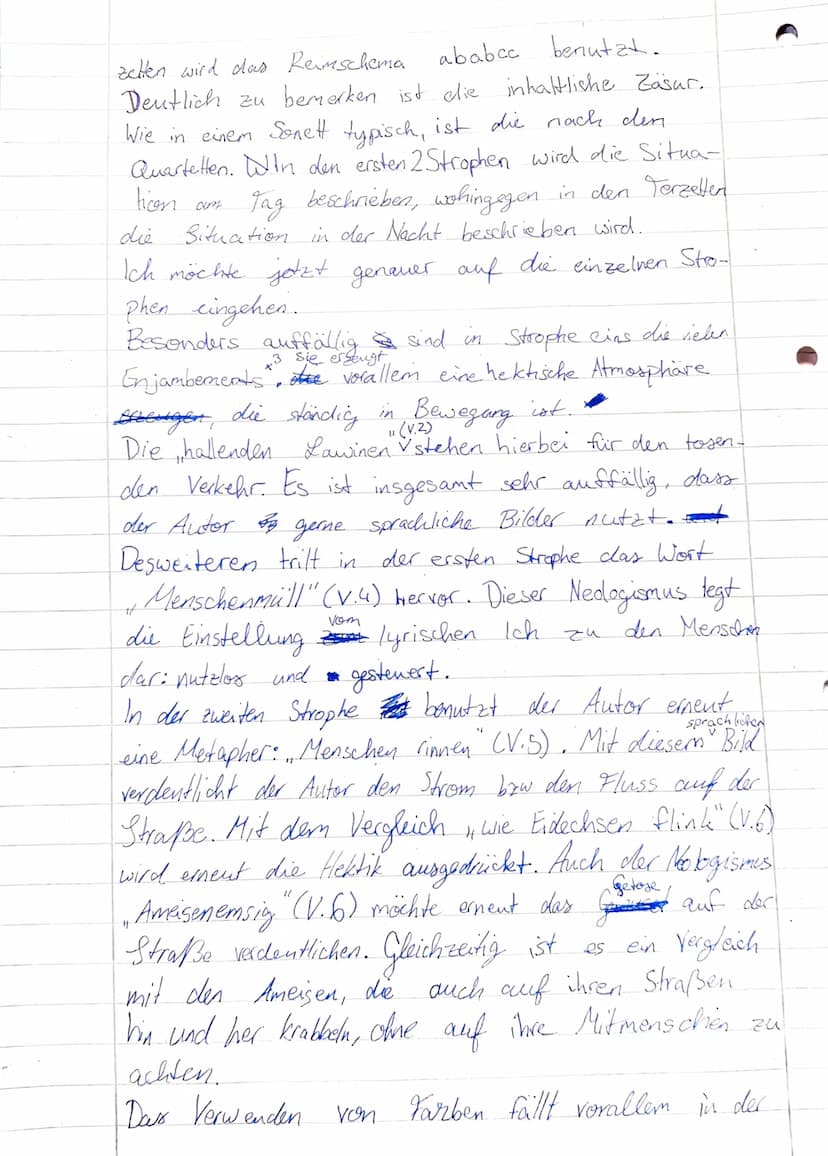 zetten wird das Reimschema ababcc benutzt.
Deutlich zu bemerken ist die inhaltliche Zäsur.
Wie in einem Sonett typisch, ist die nach den
Quartetten. In den ersten 2 Strophen wird die Situa-
tion am Tag beschrieben, wohingegen in den Terzetten
die Situation in der Nacht beschrieben wird.
Ich möchte jetzt genauer auf die einzelnen Stro-
phen eingehen.
Besonders auffällig sind in Strophe eins die vielen
Enjambements. x3 sie erzeugt vorallem eine hektische Atmosphäre
, die ständig in Bewegung ist.
Die „hallenden Lawinen" (V.2) stehen hierbei für den tosen-
den Verkehr. Es ist insgesamt sehr auffällig, dass
der Autor gerne sprachliche Bilder nutzt.
Desweiteren tritt in der ersten Strophe das Wort
„Menschenmüll" (V.4) hervor. Dieser Neologismus legt
die Einstellung vom lyrischen Ich zu den Menschen
dar: nutzlos und gesteuert.
In der zweiten Strophe benutzt der Autor erneut
eine Metapher: „Menschen rinnen" (V.5). Mit diesem sprachlichen Bild
verdeutlicht der Autor den Strom bzw den Fluss auf der
Straße. Mit dem Vergleich „wie Eidechsen flink" (V.6)
wird erneut die Hektik ausgedrückt. Auch der Neologismus
„Ameisenemsig" (V.6) möchte erneut das Getose auf der
Straße verdeutlichen. Gleichzeitig ist es ein Vergleich
mit den Ameisen, die auch auf ihren Straßen
hin und her krabbeln, ohne auf ihre Mitmenschen zu
achten.
Das Verwenden von Farben fällt vorallem in der